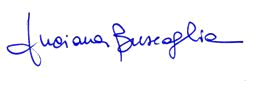 Luciana Buscaglia